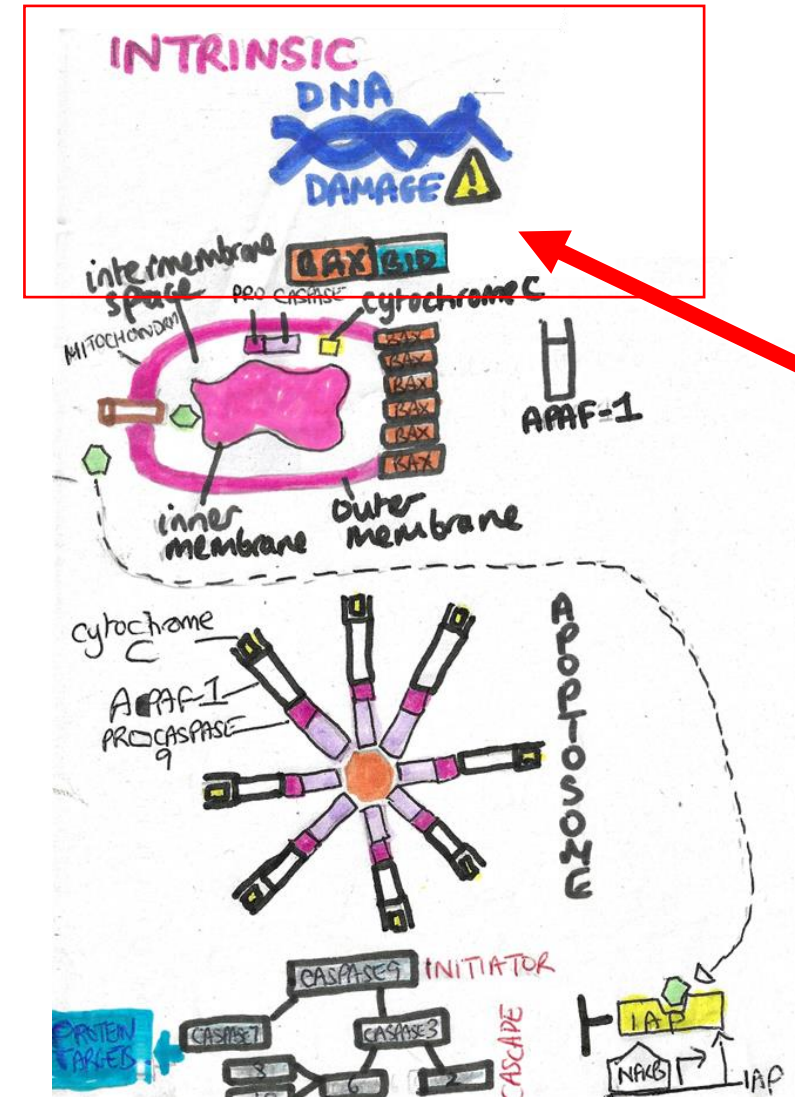 INTRINSIC
DNA
DAMAGE
BAX BID
intermembrane
space
PRO CASPASE
cytochrome C
MITOCHONDRI
BAX
BAX
BAX
BAX
BAX
BAX
APAF-1
inner
membrane
outer
membrane
cytochrome
C
APAF-1
PROCASPASE
9
APOPTOSOME
CASPASE9 INITIATOR
CASPASE7
CASPASE3
CASCADE
PROTEIN
TARGETS
3
6
2
10
IAP
NFKB
IAP